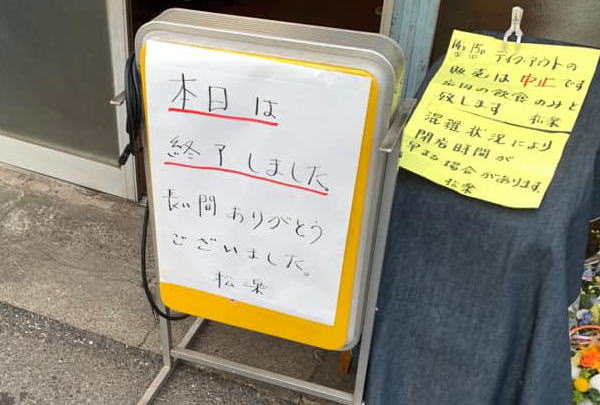 本日は
終了しました。
長い間ありがとう
ございました。
松楽
14日 15日 テイク・アウトの
販売は中止です
店内の飲食のみと
致します 松楽
混雑状況により
閉店時間が
早まる場合があります。
松楽